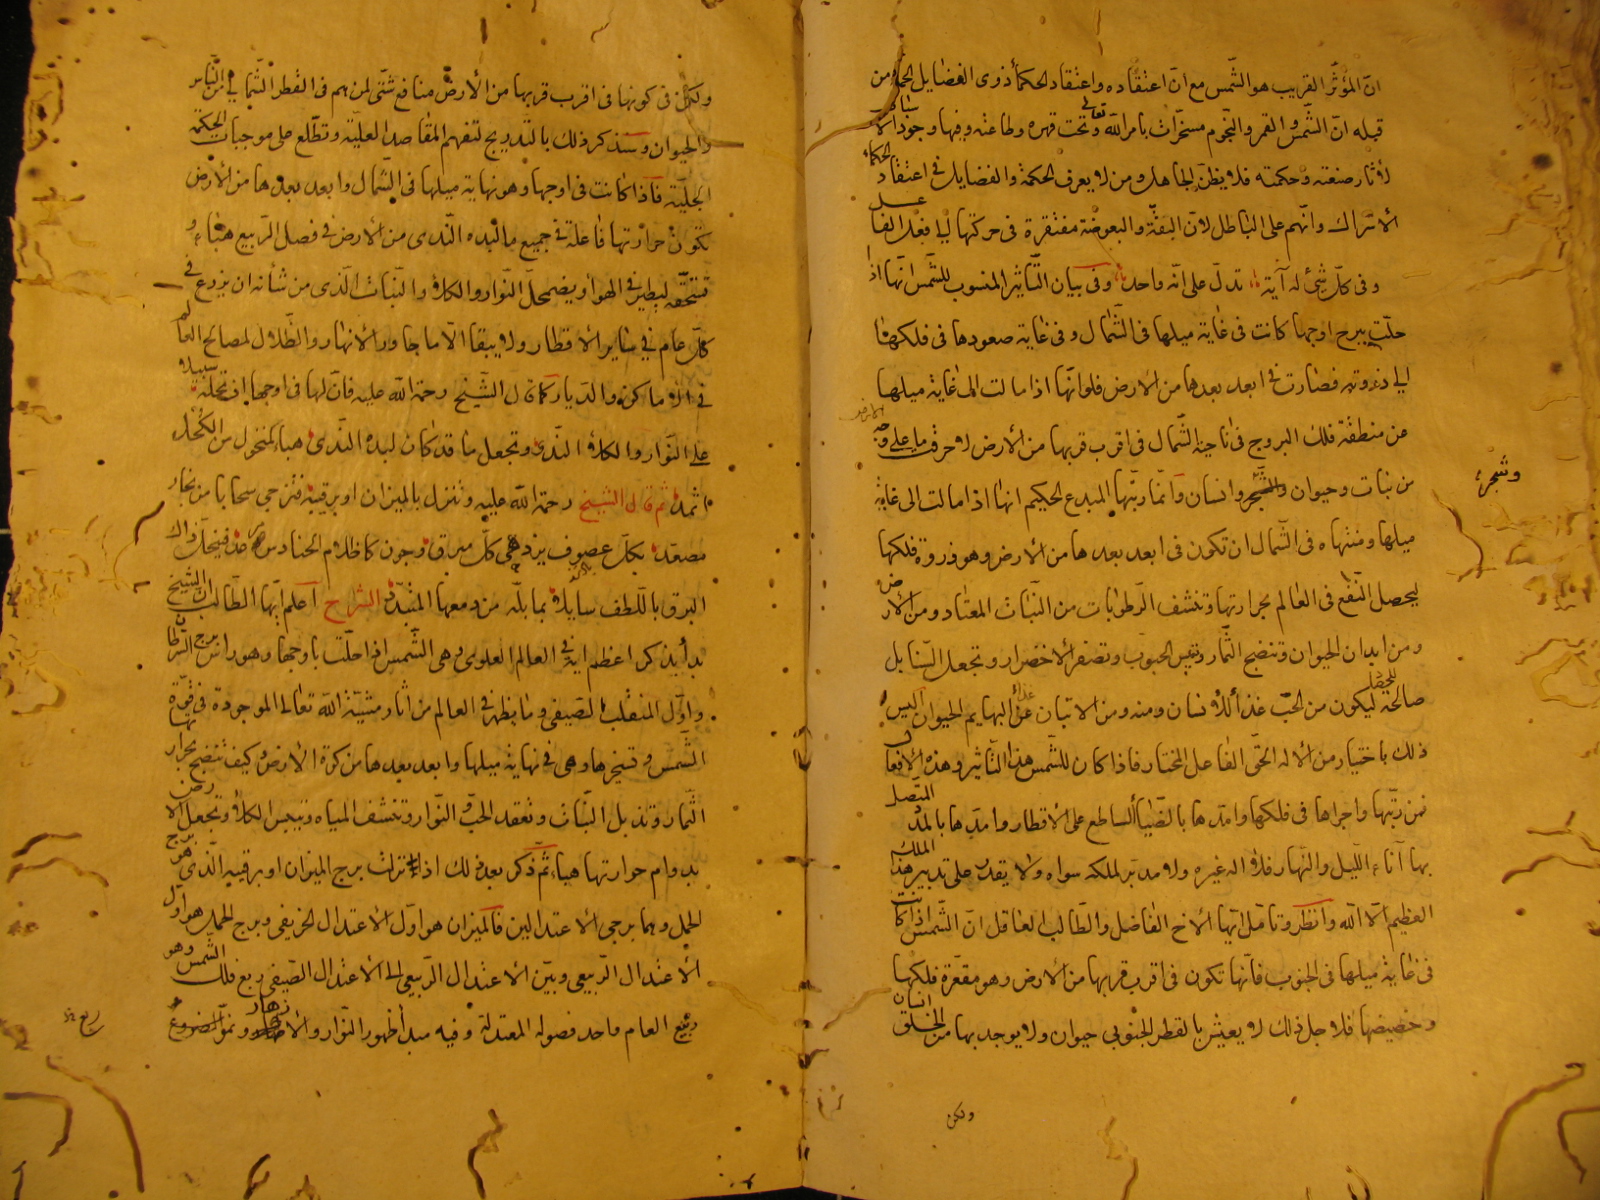 انّ المؤثّر القريب هو الشّمس مع انّ اعتقاده واعتقاد الحكمأ ذوى الفضايل الجمّه من
قبله انّ الشّمس والقمر والنّجوم مسخّرات بامر اللّه تعالى وتحت قهره وطاعته وفيها وجود
لأثار صنعته وحكمته فلا يظنّ الجاهل ومن لا يعرف الحكمة والفضايل فى اعتقاد الحكماء
الأشراك وانّهم على الباطل لانّ البقّة والبعوضة مفتقرة فى حركتها الى فعل الفاعل
وفى كلّ شئ له آية تدلّ على انّه واحد وفى بيان التّأثير المنسوب للشّمس انّها اذا
حلّت ببرج اوجها كانت فى غاية ميلها فى الشّمال وفى غاية صعودها فى فلكها
الى ذروته فصارت فى ابعد بعدها من الارض فلو انّها اذا مالت الى غاية ميلها
عن منطقة فلك البروج فى ناحية الشّمال فى اقرب قربها من الأرض لاحرقت ما على وجه الارض
من نبات وحيوان وشجر وانسان وانّما ربّها المبدع الحكيم انها اذا مالت الى غاية
وشجر
ميلها ومنتهاه فى الشّمال ان تكون فى ابعد بعدها من الأرض وهو ذروة فلكها
ليحصل النّفع فى العالم بحرارتها وتنشف الرّطوبات من النّبات المعتاد ومن الأرض
ومن ابدان الحيوان وتنضج الثّمار وتيبس الحبوب وتصفر الأخضرار وتجعل السّنابل
صالحة للحصد ليكون من الحبّ غذأ للأنسان ومنه ومن الاتبان غذأ البهايم الحيوان أليس
ذلك باختيار من الأله الحىّ الفاعل المختار فاذا كان للشّمس هذا التّأثير وهذه الأفعال
فمن ربّها واجراها فى فلكها وامدّها بالضّيأ الساطع على الأقطار وامدّها بالمدّ المتّصل
بها آناء اللّيل والنّهار فلا اله غيره ولا مدبّر لملكه سواه ولا يقدر على تدبير هذا الملك
العظيم الّا اللّه وانظر وتأمّل ايّها الأخ الفاضل والطّالب العاقل انّ الشّمس اذا كانت
فى غاية ميلها فى الجنوب فأنّها تكون فى اقرب قربها من الأرض وهو مقعّرة فلكها
وحضيضها فلاجل ذلك لا يعيش بالقطر الجنوبى حيوان ولا يوجد بها من الخلق انسان
ولكن
ولكن فى كونها فى اقرب قربها من الأرض منافع شتّى لمن هم فى القطر الشّمالي من النّاس
والحيوان وسنذكر ذلك بالتّدريج لتفهم المقاصد العليّة وتطّلع على موجبات الحكمة
الجليّة فأذا كانت فى اوجها وهو نهاية ميلها فى الشّمال وابعد بعدها من الأرض
تكون حرارتها فاعلة فى جميع ما لبّده النّدى من الأرض فى فصل الرّبيع هباء و
تستحقه ليطير فى الهوأ ويضمحلّ النّوار والكلأ والنّبات الّذى من شأنه ان يزرع فى
كلّ عام في ساير الاقطار ولا يبقا الّا ما جاور الأنهار والظّلال لمصالح العالم
فى الأماكن والدّيار كما قال الشّيخ رحمة اللّه عليه فانّ لها فى اوجها ان تحلّه سبيلا
على النّوار والكلأ النّدى وتجعل ما قد كان لبده النّدى هباء كمنحول من الكحل
اثمد ثم قال الشيخ رحمة اللّه عليه وتنزل بالميزان او برقيبه فتزجى سحابا من بخار
مصعّد بكلّ عصوف يزدهى كلّ مبرق وجون كاظلام الحنادس فيضحك ذاك
البرق باللّطف سايلا بما بلّه من دمعها المتبدّد الشراح اعلم ايّها الطّالب انّ الشيخ
بدأ يذكر اعظم آية فى العالم العلوى وهى الشّمس اذا حلّت باوجها وهو رأس برج السّرطان
واوّل المنقلب الصّيفى وما يظهر فى العالم من أثار مشيّة اللّه تعالى الموجودة فى قوّة
الشّمس وتسخيرها وهى فى نهاية ميلها وابعد بعدها من كرة الارض وكيف تنضج بحرارتها
الثّمار وتذبل النّبات وتعقد الحبّ النّوار وتنشف المياه وتيبس الكلأ وتجعل الارض
بدوام حرارتها هباء ثمّ ذكر بعد ذلك اذا نزلت برج الميزان او برقيبه الّذى هو برج
الحمل وهما برجى الأعتدالين فالميزان هو اوّل الأعتدال الخريفى وبرج الحمل هو اوّل
الأعتدال الرّبيعى وبين الأعتدال الرّبيعى الى الأعتدال الصّيفى ربع فلك الشّمس وهو
ربيع العام واحد فصوله المعتدلة وفيه مبدأ ظهور النّوار والازهار ونموّ